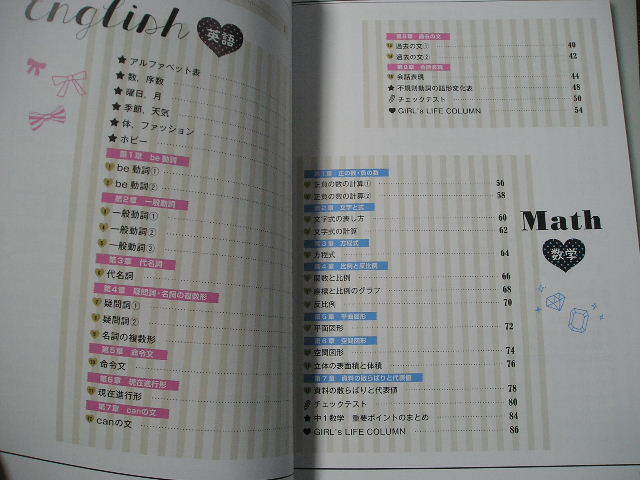 English
英語
★ アルファベット表
★ 数、序数
★ 曜日、月
★ 季節、天気
★ 体、ファッション
★ ホビー
第1章 be動詞
1 be動詞①
2 be動詞②
第2章 一般動詞
3 一般動詞①
4 一般動詞②
5 一般動詞③
第3章 代名詞
6 代名詞
第4章 疑問詞・名詞の複数形
7 疑問詞①
8 疑問詞②
9 名詞の複数形
第5章 命令文
10 命令文
第6章 現在進行形
11 現在進行形
第7章 canの文
12 canの文
第8章 過去の文
13 過去の文① 40
14 過去の文② 42
第9章 会話表現
15 会話表現 44
★ 不規則動詞の語形変化表 48
チェックテスト 50
♥ GIRL's LIFE COLUMN 54
Math
数学
第1章 正の数・負の数
正負の数の計算① 56
正負の数の計算② 58
第2章 文字と式
文字式の表し方 60
文字式の計算 62
第3章 方程式
方程式 64
第4章 比例と反比例
関数と比例 66
座標と比例のグラフ 68
反比例 70
第5章 平面図形
平面図形 72
第6章 空間図形
空間図形 74
立体の表面積と体積 76
第7章 資料の散らばりと代表値
資料の散らばりと代表値 78
チェックテスト 80
★ 中1数学 重要ポイントのまとめ 84
♥ GIRL's LIFE COLUMN 86